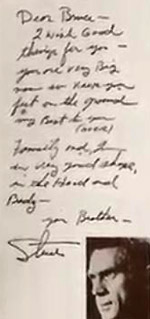 Dear Bruce —
I wish Good
things for you —
you are very Big
now so keep you
feet on the ground
my Best to you
(over)
Family and I
in very good shape,
in the Head and
Body —
your Brother —
Steve